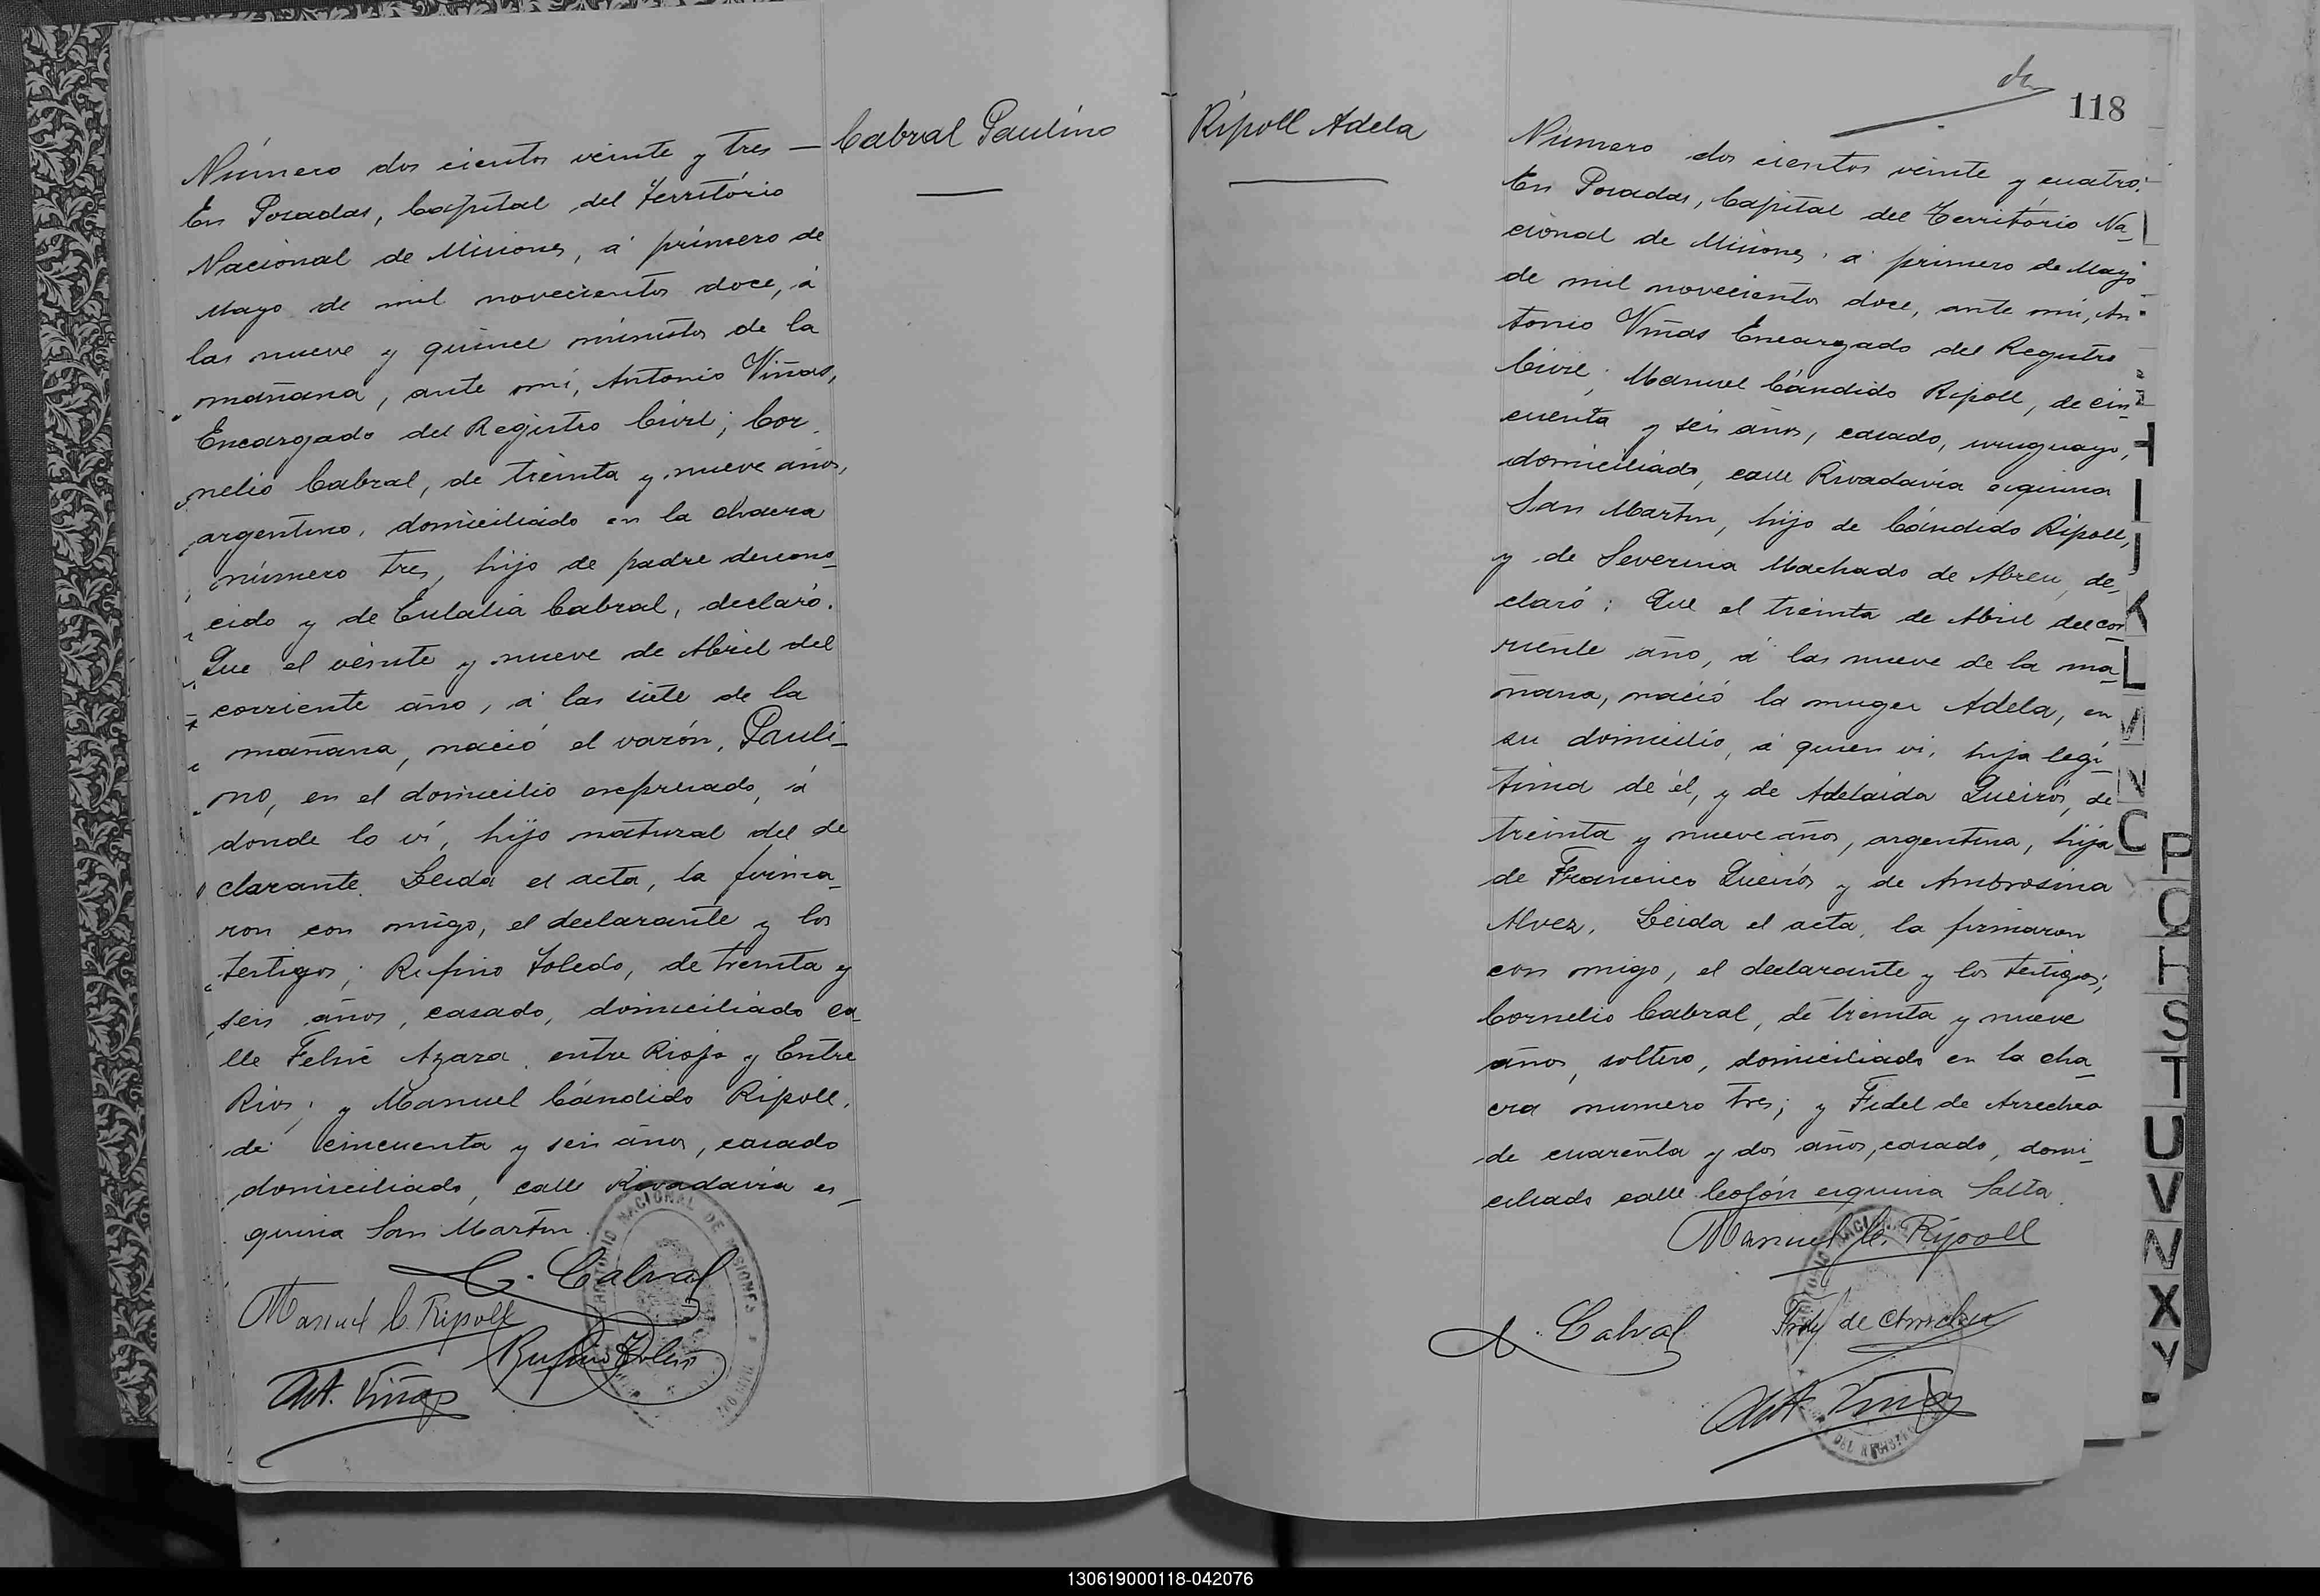 Número dos cientos veinte y tres —
En Posadas, Capital del Territorio
Nacional de Misiones, á primero de
Mayo de mil novecientos doce, á
las nueve y quince minutos de la
mañana, ante mí, Antonio Viñas,
Encargado del Registro Civil; Cor
nelio Cabral, de treinta y nueve años,
argentino, domiciliado en la chacra
número tres, hijo de padre descono_
cido y de Eulalia Cabral, declaró.
Que el veinte y nueve de Abril del
corriente año, á las siete de la
mañana, nació el varón, Pauli_
no, en el domicilio expresado, á
donde lo ví, hijo natural del de
clarante. Leida el acta, la firma_
ron con migo, el declarante y los
testigos; Rufino Toledo, de treinta y
seis años, casado, domiciliado ca_
lle Felix Azara entre Rioja y Entre
Rios; y Manuel Cándido Ripoll,
de cincuenta y seis años, casado
domiciliado, calle Rivadavia es_
quina San Martin.
C. Cabral
Manuel C. Ripoll
Rufino Toledo
Ant. Viñas
TERRITORIO NACIONAL DE MISIONES
Cabral Paulino
Ripoll Adela
118
Número dos cientos veinte y cuatro.
En Posadas, Capital del Territorio Na_
cional de Misiones, á primero de Mayo
de mil novecientos doce, ante mí, An
tonio Viñas Encargado del Registro
Civil; Manuel Cándido Ripoll, de cin
cuenta y seis años, casado, uruguayo,
domiciliado, calle Rivadavia esquina
San Martin, hijo de Cándido Ripoll,
y de Severina Machado de Abreu, de_
claró: Que el treinta de Abril del cor_
riente año, á las nueve de la ma_
ñana, nació la muger Adela, en
su domicilio, á quien ví, hija legí_
tima de él, y de Adelaida Queirós, de
treinta y nueve años, argentina, hija
de Francisco Queirós y de Ambrosina
Alvez. Leida el acta, la firmaron
con migo, el declarante y los testigos;
Cornelio Cabral, de treinta y nueve
años, soltero, domiciliado en la cha_
cra numero tres; y Fidel de Arrechea
de cuarenta y dos años, casado, domi_
ciliado calle Colón esquina Salta.
Manuel C. Ripoll
C. Cabral
Ant. Viñas
K
L
M
N
P
Q
S
T
U
V
X
Y
130619000118-042076